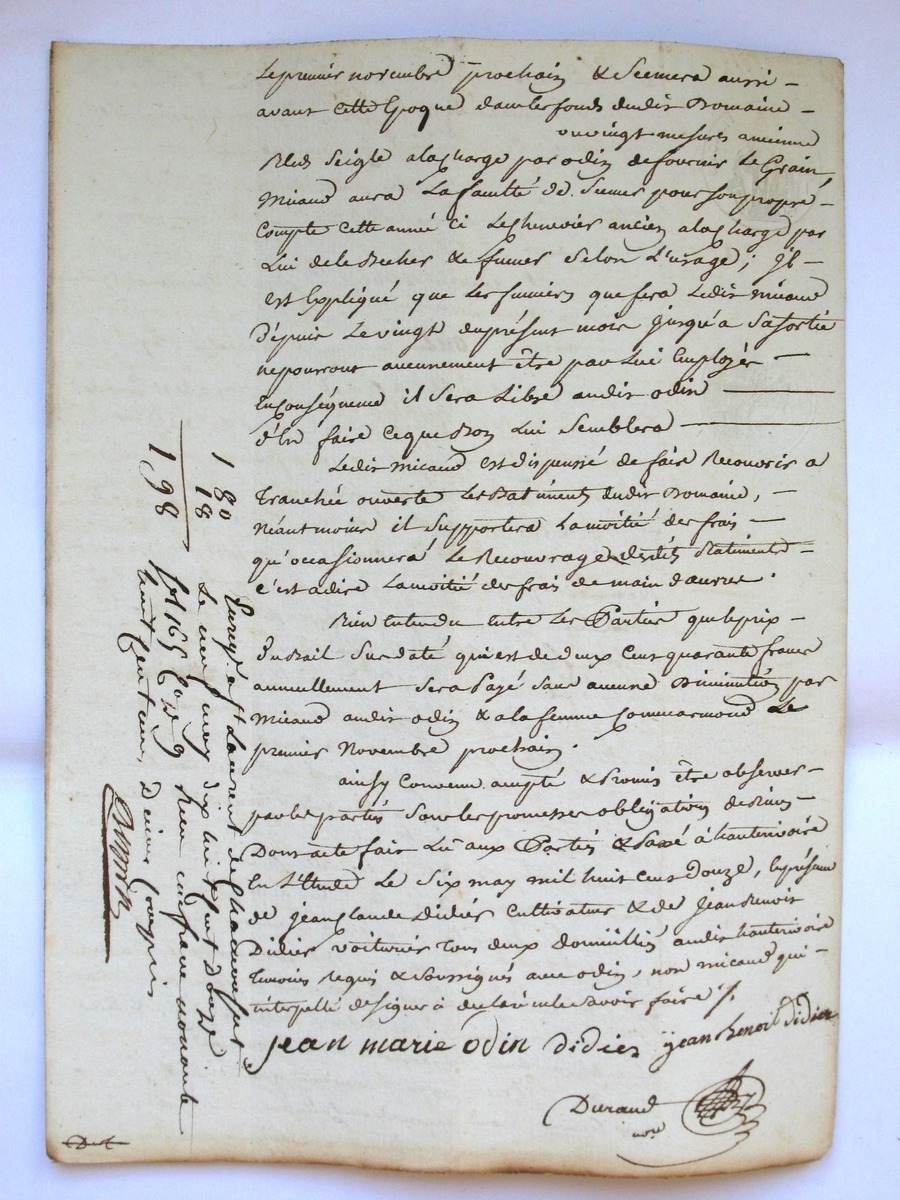 Le premier novembre prochain & Seemera aussi
avant cette Epoque dans les fonds dudit Domaine
vingt mesures ancienne
Bled Seigle a la Charge par odin de fournir Le Grain,
Micaud aura La faculté de Semer pour Son propre
Compte cette année ci Le Chenevier ancien a la Charge par
Lui de le Becher & fumer Selon L'usage; Il
est Expliqué que Les fumiers que fera Ledit micaud
Depuis Le vingt du présent mois jusqu'a Sa Sortie
ne pourront aucunement être par Lui Employés
En Conséquence il Sera Libre audit odin
d'En faire Ce que Bon Lui Semblera
Ledit micaud est dispensé de faire Recouvrir a
tranchée ouverte Les Batiments dudit Domaine,
Néantmoins il Supportera La moitié des frais
qu'occasionnera Le Recouvrage desdits Batiments
C'est a dire La moitié des frais de main d'oeuvre.
Bien Entendu Entre Les Parties que le prix
Du Bail Sus daté qui est de deux Cent quarante francs
annuellement Sera Payé Sans aucune Diminution par
Micaud audit odin & a la femme Commarmond Le
premier Novembre prochain.
ainsy Convenu accepté & Promis être observer
par les parties Sous les promesses obligations
Dont acte fait Lu aux Parties & Passé à hauterivoire
En L'Etude Le Six may mil huit Cent Douze, En présence
de jean Claude Didier Cultivateur & de Jean Benoit
Didier voiturier tous deux Domiciliés audit hauterivoire
temoins requis & Soussignés avec odin, non micaud qui
interpellé de Signer a déclaré ne le Savoir faire /.
jean marie odin Didier jean benoit didier
Durand
nore
1 80
18
1,98
Enregt. a St Laurent de Chamousset
Le neuf may dix huit Cent Douze
fol 165 Co. Reçu un franc nonante
huit Centimes, Decime Compris